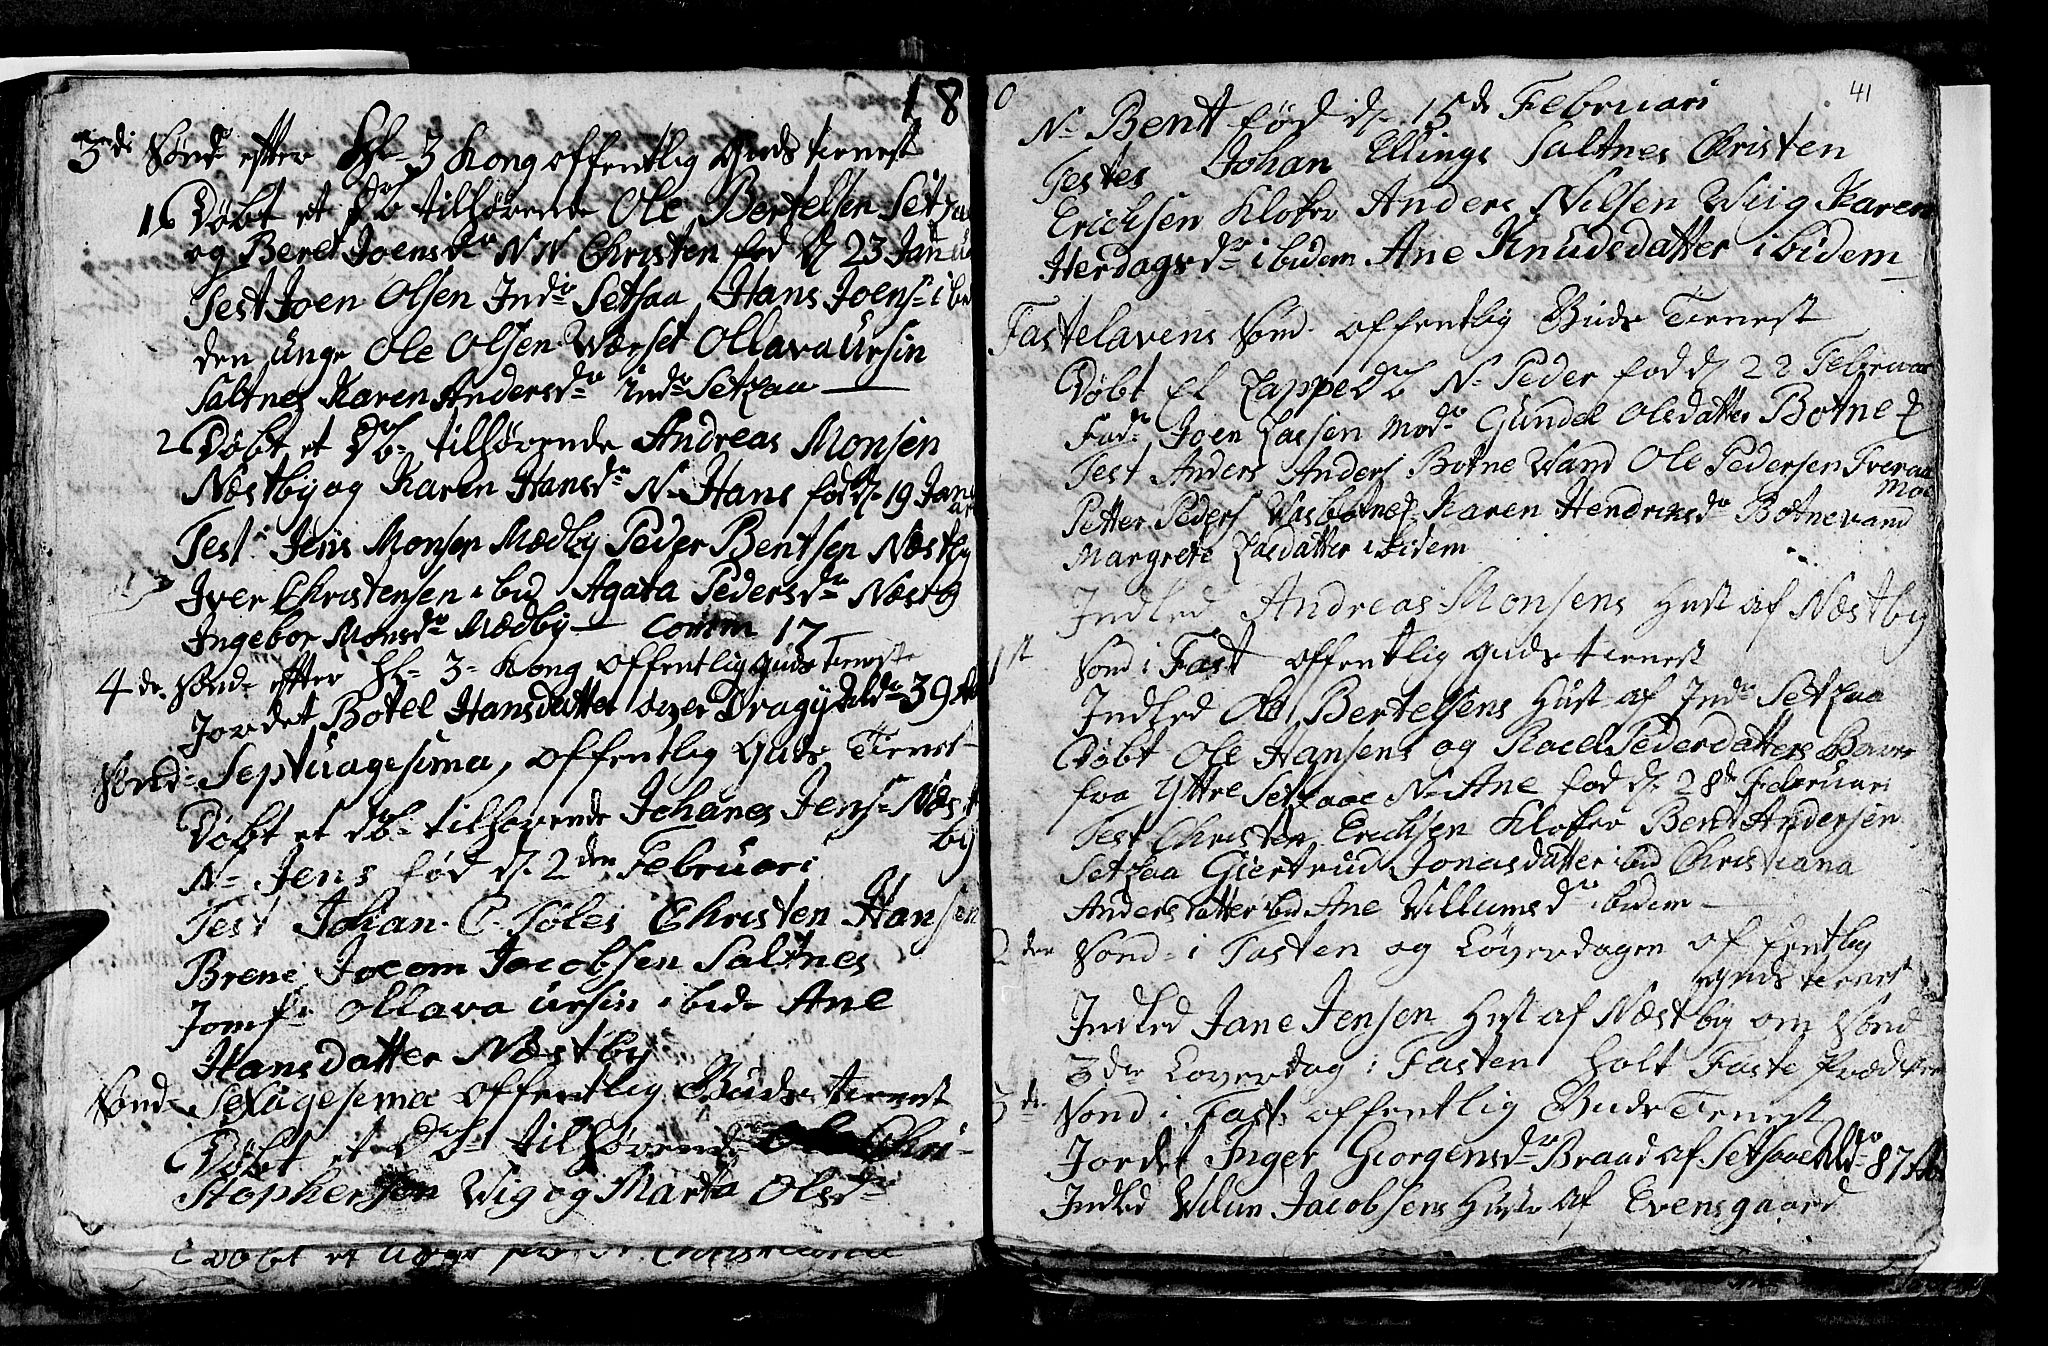 18
3de Sønd efter H- 3 Kong offentlig Guds tienest
16 Døbt et db tilhørende Ole Bertelsen Setsaa
og Beret Joensdr N N Christen fød d 23 Januar
Test Joen Olsen Indr Setsaa Hans Joens- ibi
den unge Ole Olsen Værset Ollava Ursin
Saltnes Karen Andersdr Indr Setsaa
2 Døbt et Db- tilhørende Andreas Monsen
Næstby og Karen Hansdr N- Hans fød d. 19 Janu
ar
Test Jens Monsen Mædby Peder Bentsen Næstby
Iver Christensen ibid Agata Pedersdr Næstb
Ingebor Monsdr Mædby Comm 17
4de Sønd- efter H- 3- Kong offentlig guds Tienste
Jordet Botel Hansdatter over Dragy Aldr 39
Sønd- Septuagesima, offentlig Guds Tienst
Døbt et db- tilhørende Johanes Jens- Næst
by
N- Jens fød d. 2den Februari
Test Johan C. Føles Christen Hansen
Brene Jocom Jacobsen Saltnes
Jomfr Ollava Ursin ibid- Ane
Hansdatter Næstby
Sønd- Sexagesima offentlig Guds tienest
Døbt et Db- tilhørende Chri-
stophersen Wig og Marta Olsdr
Døbt et
0
41
N- Bent fød d. 15de Februari
Testes Johan Ellings Saltnes Christen
Erichsen Kloker Anders Nilsen Wiig Karen
Herdagsdr ibidem Ane Knudsdatter ibidem
Fastelavens Sønd- offentlig Guds Tienest
Døbt Et Lappe Db N- Peder fød d 22 Februar
Fadr Joen Lassen Modr Gundel Olsdatter Botne
Test Anders Anders Botne Vand Ole Pedersen Tveraa
Moe
Petter Peders Karen Hendricksdr Botnevand
Margrete Lasdatter ibidem
Indled Andreas Monsens Hust af Næstby
1st Sønd i Fast offentlig guds tienest
Indled Ole Bertelsens Hust af Indr Setsaa
Døbt Ole Hansens og Racel Pedersdatters Barn
fra Yttre Setsaae N- Ane fød d. 28de Februari
Test Christen Erichsen Kloker Bent Andersen
Setsaa Giertrud Jonasdatter ibid Christiana
Andersdatter ibid Ane Villumsdr ibidem
2den Sønd- i Fasten og Løverdagen offentlig
guds tienest
Indled Jane Jensen Hust af Næstby om Sønd
3de Løverdag i Fasten holt Faste Prædiken
3de Sønd i Fast- offentlig Guds Tienest
Jordet Inger Giorgensdr Braad af Setsaae Aldr 87
Indled Vilum Jacobsens Hustr af Evensgaard